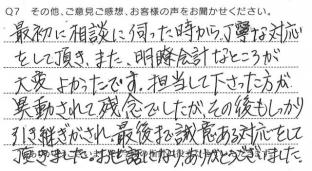 Q7 その他、ご意見ご感想、お客様の声をお聞かせください。
最初に相談に伺った時から、丁寧な対応
をして頂き、また、明瞭会計なところが
大変よかったです。担当して下さった方が
異動されて残念でしたが、その後もしっかり
引き継ぎがされ、最後まで誠意ある対応をして
頂きました。お世話になりありがとうございました。